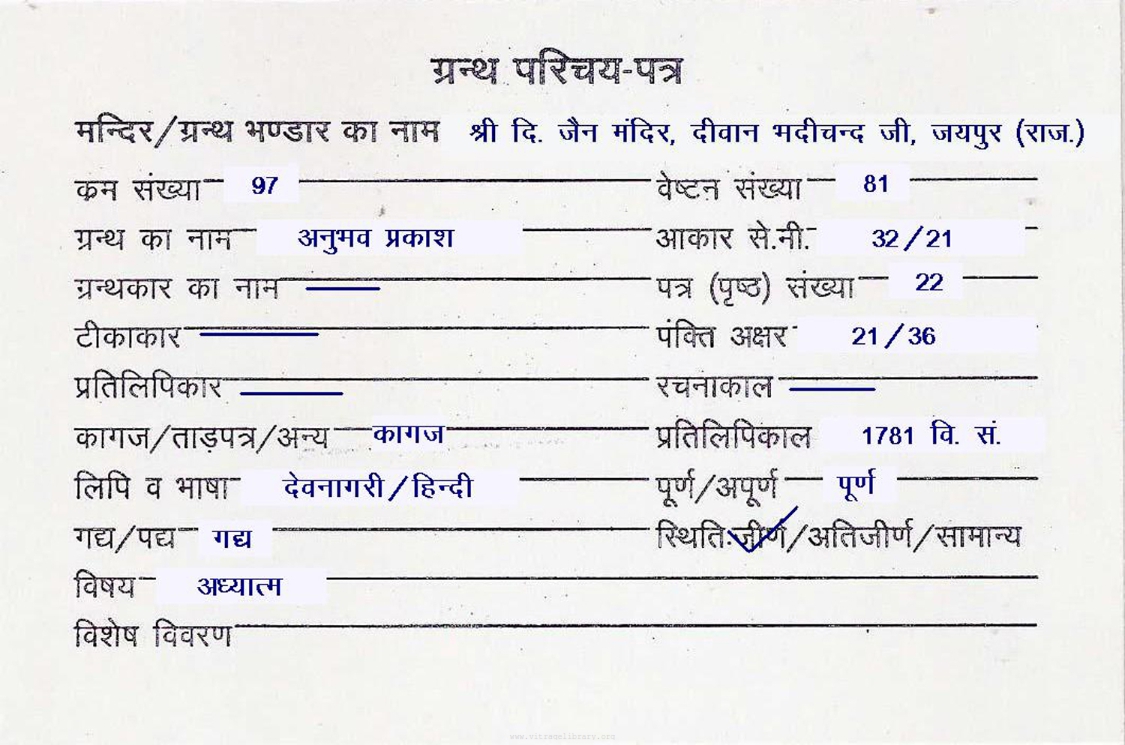 ग्रन्थ परिचय-पत्र
मन्दिर/ग्रन्थ भण्डार का नाम श्री दि. जैन मंदिर, दीवान भदीचन्द जी, जयपुर (राज.)
क्रम संख्या 97 वेष्टन संख्या 81
ग्रन्थ का नाम अनुभव प्रकाश आकार से.मी. 32/21
ग्रन्थकार का नाम पत्र (पृष्ठ) संख्या 22
टीकाकार पंक्ति अक्षर 21/36
प्रतिलिपिकार रचनाकाल
कागज/ताड़पत्र/अन्य कागज प्रतिलिपिकाल 1781 वि. सं.
लिपि व भाषा देवनागरी/हिन्दी पूर्ण/अपूर्ण पूर्ण
गद्य/पद्य गद्य स्थितिःजीर्ण/अतिजीर्ण/सामान्य
विषय अध्यात्म
विशेष विवरण